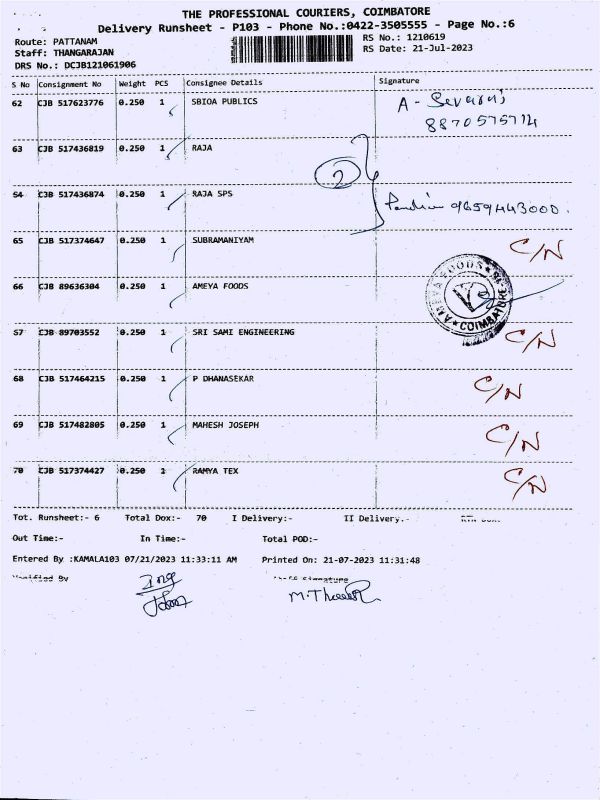 THE PROFESSIONAL COURIERS, COIMBATORE
Delivery Runsheet - P103 - Phone No.:0422-3505555 - Page No.:6
Route: PATTANAM
RS No.: 1210619
Staff: THANGARAJAN
RS Date: 21-Jul-2023
DRS No.: DCJB121061906
S No Consignment No Weight PCS Consignee Details Signature
62 CJB 517623776 0.250 1 SBIOA PUBLICS
A -
8870575714
63 CJB 517436819 0.250 1 RAJA
2
54 CJB 517436874 0.250 1 RAJA SPS
9659443000.
65 CJB 517374647 0.250 1 SUBRAMANIYAM C/N
66 CJB 89636304 0.250 1 AMEYA FOODS
AMEYA FOODS ★ COIMBATORE
57 CJB 89703552 0.250 1 SRI SAMI ENGINEERING C/N
68 CJB 517464215 0.250 1 P DHANASEKAR C/N
69 CJB 517482805 0.250 1 MAHESH JOSEPH C/N
70 CJB 517374427 0.250 1 RAMYA TEX C/N
Tot. Runsheet:- 6 Total Dox:- 70 I Delivery:- II Delivery:-
Out Time:- In Time:- Total POD:-
Entered By :KAMALA103 07/21/2023 11:33:11 AM Printed On: 21-07-2023 11:31:48
Verified By Signature